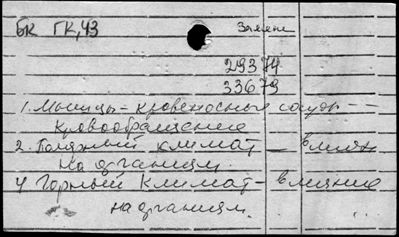 БК ГК,43 Замени
29374
33679
1. Мышцы - кровеносные сосуды - -
Кровообращение
2. Горный климат - влиян
На организм.
4 Горный Климат - влияние
на организм.